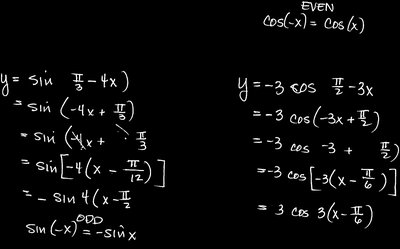 EVEN
cos(-x) = cos(x)
y = sin π/3 - 4x)
= sin (-4x + π/3)
= sin (-4x + π/3
= sin[-4(x - π/12)]
= - sin 4(x - π/2
ODD
sin(-x) = -sin x
y = -3 cos π/2 - 3x
= -3 cos(-3x + π/2)
= -3 cos -3 + π/2)
= -3 cos[-3(x - π/6)]
= 3 cos 3(x - π/6)